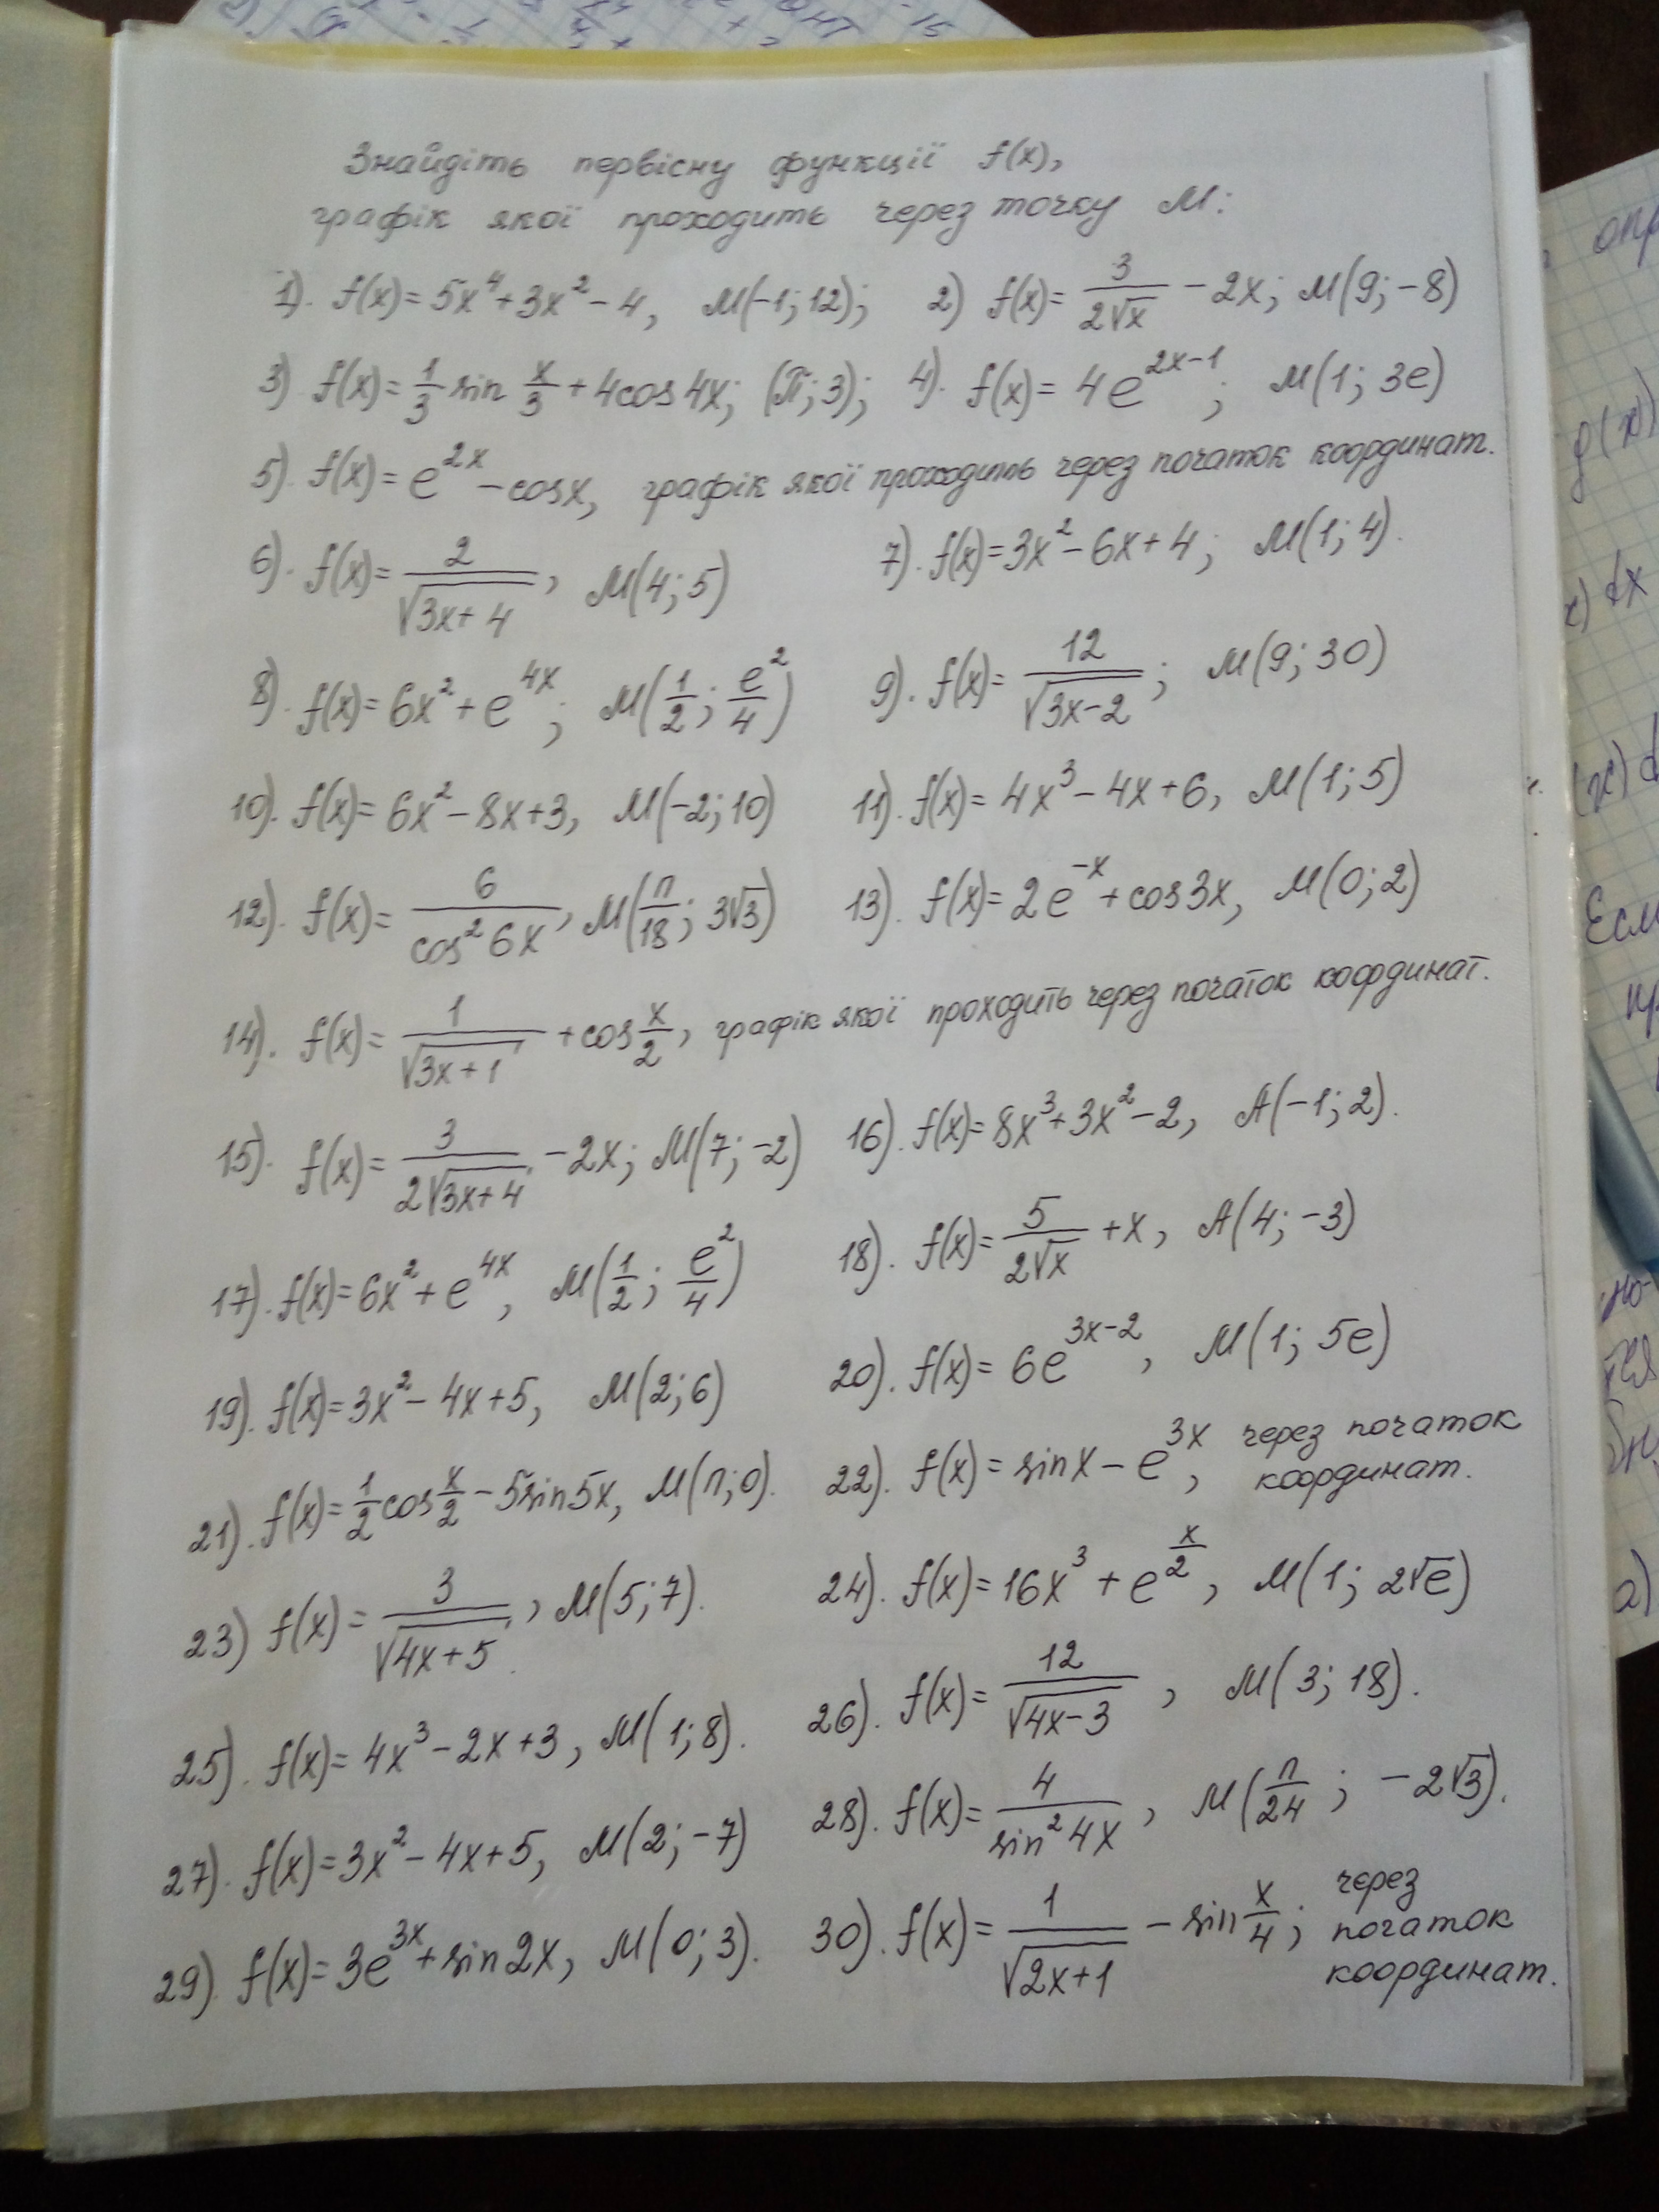 Знайдіть первісну функції f(x),
графік якої проходить через точку M:
1). f(x)=5x⁴+3x²-4, M(-1;12); 2) f(x)=3/(2√x) -2x; M(9;-8)
3) f(x)=1/3 sin x/3 +4cos4x; (π;3); 4). f(x)=4e^(2x-1); M(1; 3e)
5). f(x)=e^(2x) -cosx, графік якої проходить через початок координат.
6). f(x)=2/√(3x+4), M(4;5) 7). f(x)=3x²-6x+4; M(1;4).
8). f(x)=6x²+e^(4x); M(1/2; e²/4) 9). f(x)=12/√(3x-2); M(9;30)
10). f(x)=6x²-8x+3, M(-2;10) 11). f(x)=4x³-4x+6, M(1;5)
12). f(x)=6/cos²6x, M(π/18; 3√3) 13). f(x)=2e^(-x)+cos3x, M(0;2)
14). f(x)=1/√(3x+1) +cos x/2, графік якої проходить через початок координат.
15). f(x)=3/(2√(3x+4)) -2x; M(7;-2) 16). f(x)=8x³+3x²-2, A(-1;2).
17). f(x)=6x²+e^(4x), M(1/2; e²/4) 18). f(x)=5/(2√x) +x, A(4;-3)
19). f(x)=3x²-4x+5, M(2;6) 20). f(x)=6e^(3x-2), M(1; 5e)
21). f(x)=1/2 cos x/2 -5sin5x, M(π;0). 22). f(x)=sinx-e^(3x), через початок
координат.
23) f(x)=3/√(4x+5), M(5;7). 24). f(x)=16x³+e^(x/2), M(1; 2√e)
25). f(x)=4x³-2x+3, M(1;8). 26). f(x)=12/√(4x-3), M(3;18).
27). f(x)=3x²-4x+5, M(2;-7) 28). f(x)=4/sin²4x, M(π/24; -2√3).
29). f(x)=3e^(3x)+sin2x, M(0;3). 30). f(x)=1/√(2x+1) -sin x/4; через
початок
координат.
g(x)
dx
Есл